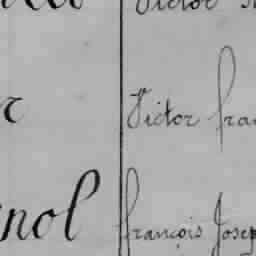 Victor
Victor fran
nol françois Josep